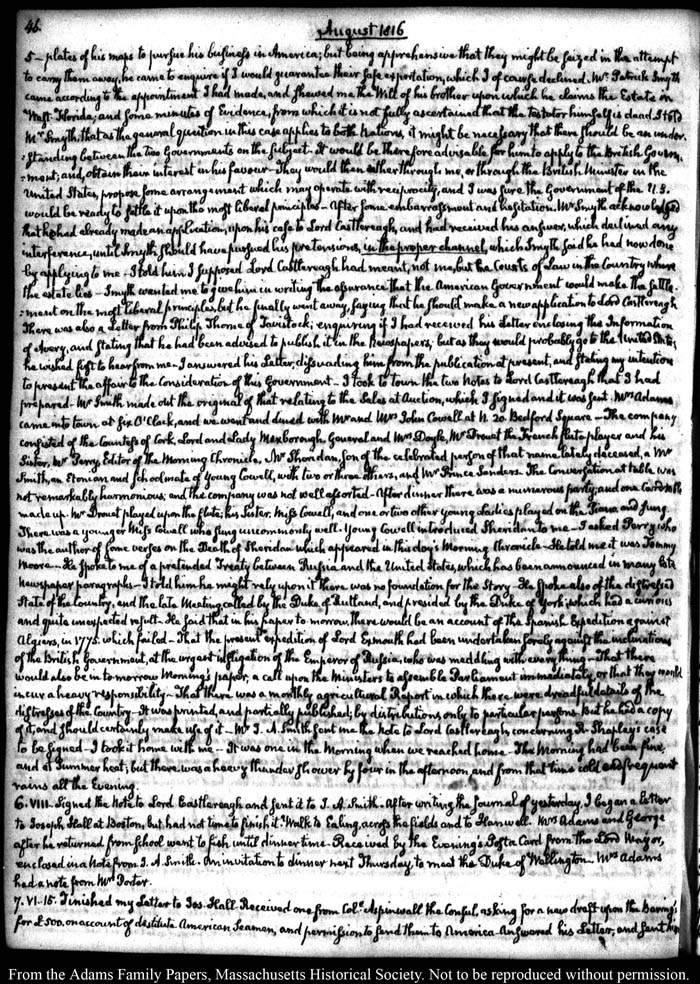 46.
August 1816
5 - plates of his maps to pursue his business in America; but being apprehensive that they might be seized in the attempt
to carry them away, he came to enquire if I would guarantee their safe exportation, which I of course declined. Mr. Patrick Smyth
came according to the appointment I had made, and shewed me the Will of his brother upon which he claims the Estate on
West-Florida; and some minutes of Evidence, from which it is not fully ascertained that the testator himself is dead. I told
Mr. Smyth that as the general question in this case applies to both Nations, it might be necessary that there should be an under-
-standing between the two Governments on the subject. It would be therefore advisable for him to apply to the British Govern-
-ment; and, obtain their interest in his favour - They would then either through me, or through the British Minister in the
United States, propose some arrangement which may operate with reciprocity, and I was sure the Government of the U.S.
would be ready to settle it upon the most liberal principles - After some embarrassment and hesitation. Mr. Smyth acknowledged
that he had already made an application, upon his case to Lord Castlereagh, and had received his answer, which declined any
interference, until Smyth should have pursued his pretensions, in the proper channel, which Smyth said he had now done
by applying to me - I told him I supposed Lord Castlereagh had meant, not me, but the Courts of Law in the Country where
the estate lies - Smyth wanted me to give him in writing the assurance that the American Government would make the settle-
-ment on the most liberal principles, but he finally went away, saying that he should make a new application to Lord Castlereagh
There was also a Letter from Philip Thorne of Tavistock; enquiring if I had received his Letter enclosing the Information
of Avery, and stating that he had been advised to publish it in the Newspapers; but as they would probably go to the United States,
he wished first to hear from me - I answered his Letter, dissuading him from the publication at present, and stating my intention
to present the affair to the Consideration of this Government - I took to Town the two Notes to Lord Castlereagh that I had
prepared - Mr. Smith made out the original of that relating to the Sales at Auction, which I signed and it was sent. Mrs Adams
came into town at Six O'Clock, and we went and dined with Mr and Mrs John Cowell at N. 20 Bedford Square - The company
consisted of the Countess of Cork, Lord and Lady Mexborough, General and Mrs Doyle, Mr Drouet the French flute player and his
Sister, Mr Perry, Editor of the Morning Chronicle, Mr Sheridan, son of the celebrated person of that name lately deceased, a Mr
Smith, an Etonian and schoolmate of Young Cowell, with two or three others, and Mr Prince Sanders. The Conversation at table was
not remarkably harmonious; and the company was not well assorted - After dinner there was a numerous party; and one Card table
made up. Mr Drouet played upon the flute; his Sister, Miss Cowell, and one or two other young Ladies played on the Piano, and sung.
There was a younger Miss Cowell who sung uncommonly well. Young Cowell introduced Sheridan to me - I asked Perry who
was the author of some verses on the Death of Sheridan which appeared in this day's Morning Chronicle - He told me it was Tommy
Moore - He spoke to me of a pretended Treaty between Russia and the United States, which has been announced in many late
newspaper paragraphs - I told him he might rely upon it there was no foundation for the Story - He spoke also of the distressed
State of the Country, and the late Meeting called by the Duke of Rutland, and presided by the Duke of York; which had a curious
and quite unexpected result. He said that in his paper to-morrow, there would be an account of the Spanish Expedition against
Algiers, in 1775. which failed - That the present expedition of Lord Exmouth had been undertaken sorely against the inclinations
of the British Government, at the urgent instigation of the Emperor of Russia, who was meddling with every thing - That there
would also be in to-morrow Morning's paper, a call upon the Ministers to assemble Parliament immediately or that they would
incur a heavy responsibility - That there was a monthly agricultural Report in which there were dreadful details of the
distresses of the Country - It was printed, and partially published; by distributions only to particular persons. But he had a copy
of it, and should certainly make use of it - Mr J. A. Smith sent me the Note to Lord Castlereagh concerning R. Shapley's case
to be signed - I took it home with me - It was one in the Morning when we reached home - The Morning had been fine,
and at Summer heat; but there was a heavy thunder shower by four in the afternoon, and from that time cold and frequent
rains all the Evening.
6. VIII. Signed the Note to Lord Castlereagh and sent it to J. A. Smith - After writing the Journal of yesterday, I began a letter
to Joseph Hall at Boston, but had not time to finish it. Walk to Ealing, across the fields and to Hanwell. Mrs Adams and George
after he returned from school went to fish until dinner time - Received by the Evening's Post a Card from the Lord Mayor,
enclosed in a Note from J. A. Smith - An invitation to dinner next Thursday, to meet the Duke of Wellington - Mrs Adams
had a note from Mrs Porter.
7. VI. 15. Finished my Letter to Jos. Hall. Received one from Coll. Aspinwall the Consul, asking for a new draft upon the Barings
for £500. on account of destitute American Seamen, and permission to send them to America. Answered his Letter, and sent him
From the Adams Family Papers, Massachusetts Historical Society. Not to be reproduced without permission.